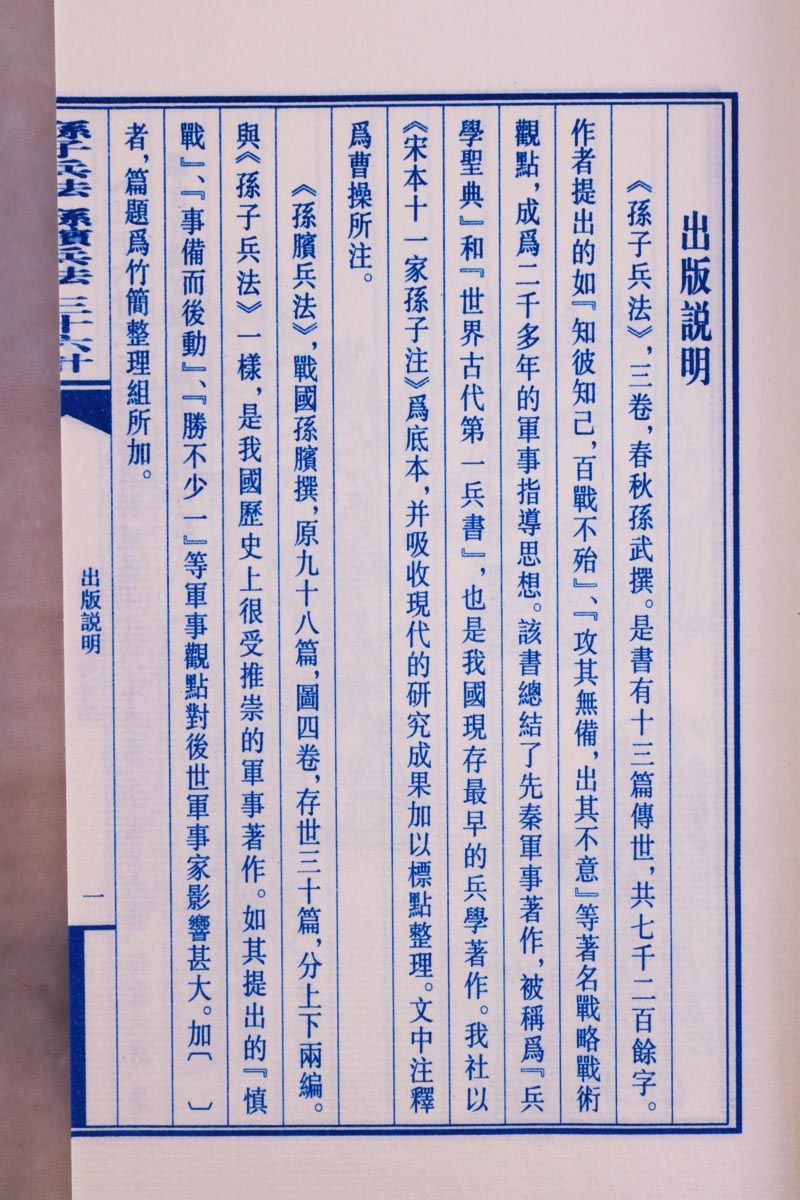 出版説明
《孫子兵法》，三卷，春秋孫武撰。是書有十三篇傳世，共七千二百餘字。
作者提出的如『知彼知己，百戰不殆』、『攻其無備，出其不意』等著名戰略戰術
觀點，成爲二千多年的軍事指導思想。該書總結了先秦軍事著作，被稱爲『兵
學聖典』和『世界古代第一兵書』，也是我國現存最早的兵學著作。我社以
《宋本十一家孫子注》爲底本，并吸收現代的研究成果加以標點整理。文中注釋
爲曹操所注。
《孫臏兵法》，戰國孫臏撰，原九十八篇，圖四卷，存世三十篇，分上下兩編。
與《孫子兵法》一樣，是我國歷史上很受推崇的軍事著作。如其提出的『慎
戰』、『事備而後動』、『勝不少一』等軍事觀點對後世軍事家影響甚大。加〔　〕
者，篇題爲竹簡整理組所加。
孫子兵法 孫臏兵法 三十六計
出版説明
一